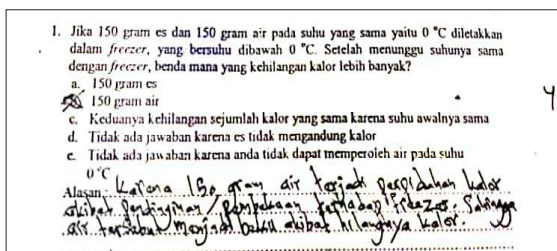 1. Jika 150 gram es dan 150 gram air pada suhu yang sama yaitu 0 °C diletakkan
dalam freezer, yang bersuhu dibawah 0 °C. Setelah menunggu suhunya sama
dengan freezer, benda mana yang kehilangan kalor lebih banyak?
a. 150 gram es
150 gram air
c. Keduanya kehilangan sejumlah kalor yang sama karena suhu awalnya sama
d. Tidak ada jawaban karena es tidak mengandung kalor
e. Tidak ada jawaban karena anda tidak dapat memperoleh air pada suhu
0 °C
Alasan : Karena 150 gram air terjadi perpindahan kalor
akibat Pendinginan / Pembekuan terhadap Freezer. Sehingga
air tersebut menjadi beku akibat hilangnya kalor.